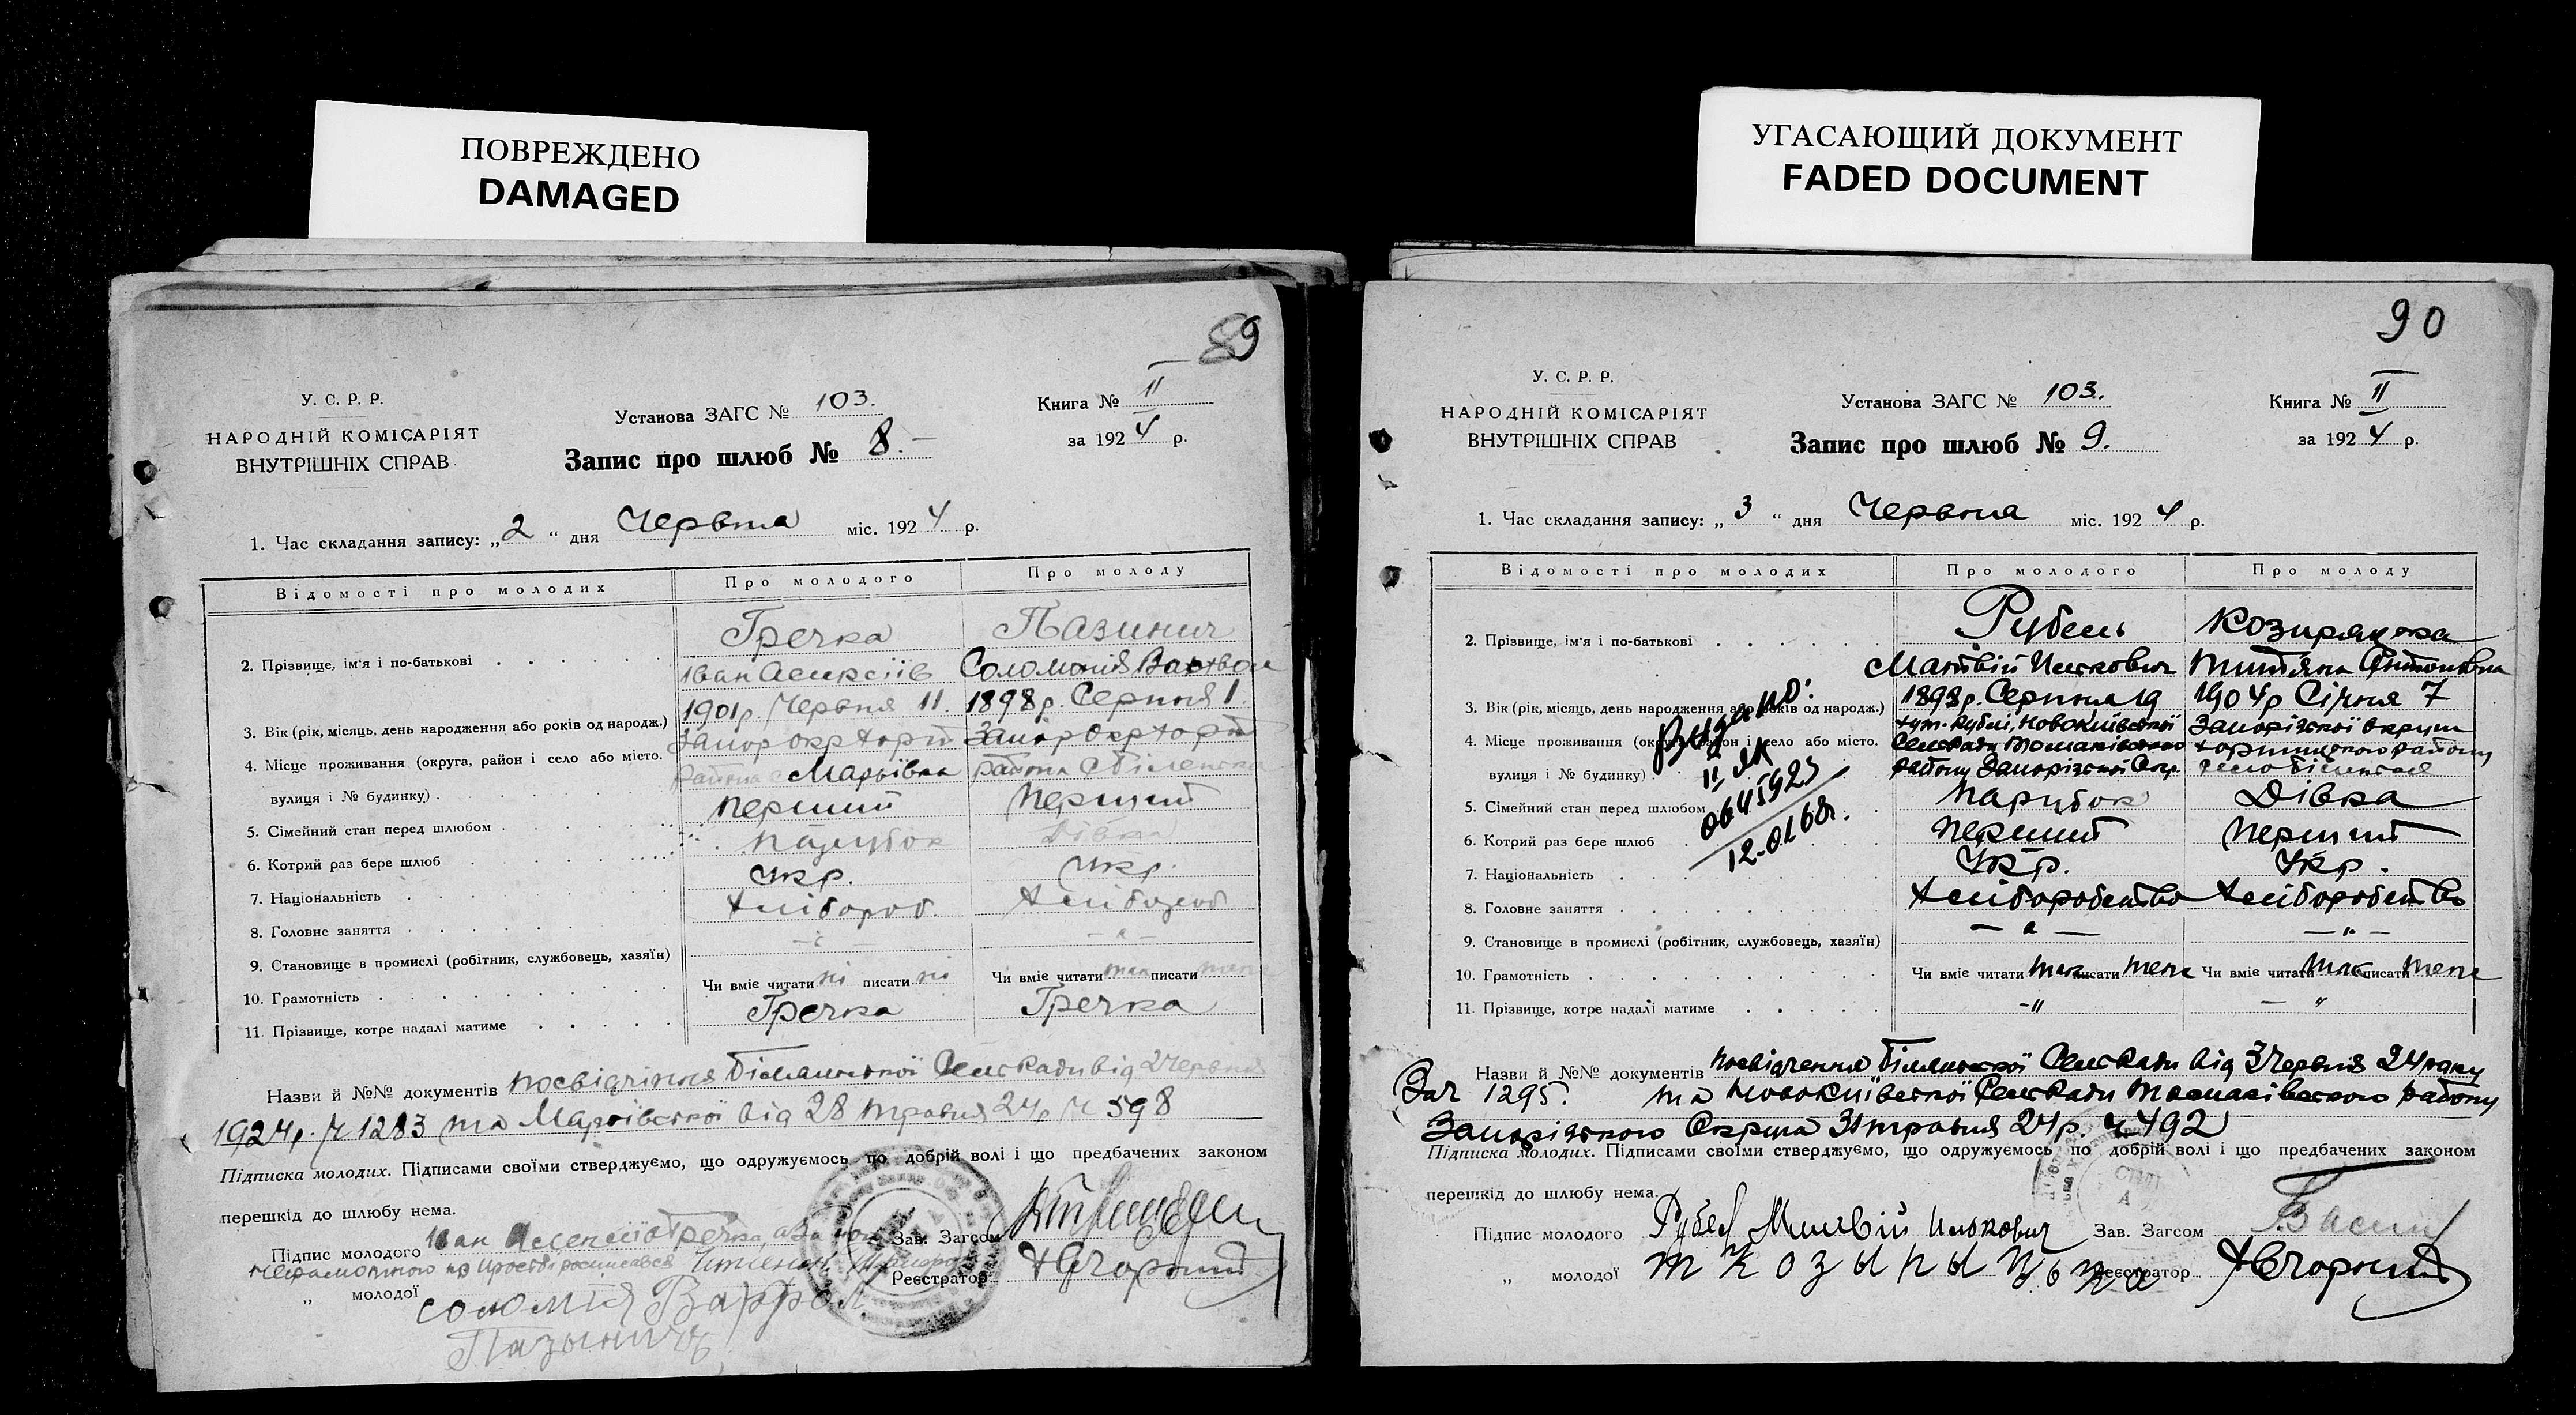 ПОВРЕЖДЕНО
DAMAGED
89
У. С. Р. Р.
НАРОДНІЙ КОМІСАРІЯТ
ВНУТРІШНІХ СПРАВ
Установа ЗАГС № 103.
Запис про шлюб № 8.
Книга № II
за 1924 р.
1. Час складання запису: „2“ дня Червня міс. 1924 р.
Відомості про молодих Про молодого Про молоду
2. Прізвище, ім'я і по-батькові Гречка Пазинич
Іван Алексіїв Соломонія
3. Вік (рік, місяць, день народження або років од народж.) 1901р. Червня 11. 1898р. Серпня 1.
4. Місце проживання (округа, район і село або місто. Запор окр Хорт Запор Окр Хорт
вулиця і № будинку) района с Марьівка района с Біленька
5. Сімейний стан перед шлюбом Перший Перший
6. Котрий раз бере шлюб Парубок Дівка
7. Національність Укр. Укр.
8. Головне заняття Хлібороб. Хлібороб
9. Становище в промислі (робітник, службовець, хазяїн) — „ — — „ —
10. Грамотність Чи вміє читати ні писати ні Чи вміє читати так писати теж
11. Прізвище, котре надалі матиме Гречка Гречка
Назви й №№ документів посвідчіння Біляньської Сельради від 2 червня
1924р. Ч 1283 та Марьівської від 28 травня 24р Ч 598
Підписка молодих. Підписами своїми стверджуємо, що одружуємось по добрій волі і що предбачених законом
перешкід до шлюбу нема.
Підпис молодого Іван Гречка, а за його Зав. Загсом
неграмотного по прозьбі росписався
Реєстратор
„ молодої соломія
Пазынычь
УГАСАЮЩИЙ ДОКУМЕНТ
FADED DOCUMENT
90
У. С. Р. Р.
НАРОДНІЙ КОМІСАРІЯТ
ВНУТРІШНІХ СПРАВ
Установа ЗАГС № 103.
Запис про шлюб № 9.
Книга № II
за 1924 р.
1. Час складання запису: „3“ дня Червня міс. 1924 р.
Відомості про молодих Про молодого Про молоду
2. Прізвище, ім'я і по-батькові Рубель Козирацька
Матвій Ількович Титяна Антонівна
3. Вік (рік, місяць, день народження або років од народж.) 1898р. Серпня 19 1904р Січня 7
4. Місце проживання (округа, район і село або місто. хут. Рублі, Новокиівської Запорізської округи
Сельради Томаківського Хортицького району
вулиця і № будинку) району Запорізської Окр. село Біленьке
5. Сімейний стан перед шлюбом Парубок Дівка
6. Котрий раз бере шлюб Перший Перший
7. Національність Укр. Укр.
8. Головне заняття Хліборобство Хліборобство
9. Становище в промислі (робітник, службовець, хазяїн) — „ — — „ —
10. Грамотність Чи вміє читати так писати теж Чи вміє читати так писати теж
11. Прізвище, котре надалі матиме -„ — „
Видано:
II ЯК
0645925
12.01.60г.
Назви й №№ документів посвідчення Біляньскої Сельради від 3 червня 24 року
За ч 1295. та Новокиівської Сельради Томаківського району
Запорізського Округа 31 травня 24р. ч 492
Підписка молодих. Підписами своїми стверджуємо, що одружуємось по добрій волі і що предбачених законом
перешкід до шлюбу нема.
Підпис молодого Рубель Матвій Илькович Зав. Загсом
„ молодої т козырыцька Реєстратор